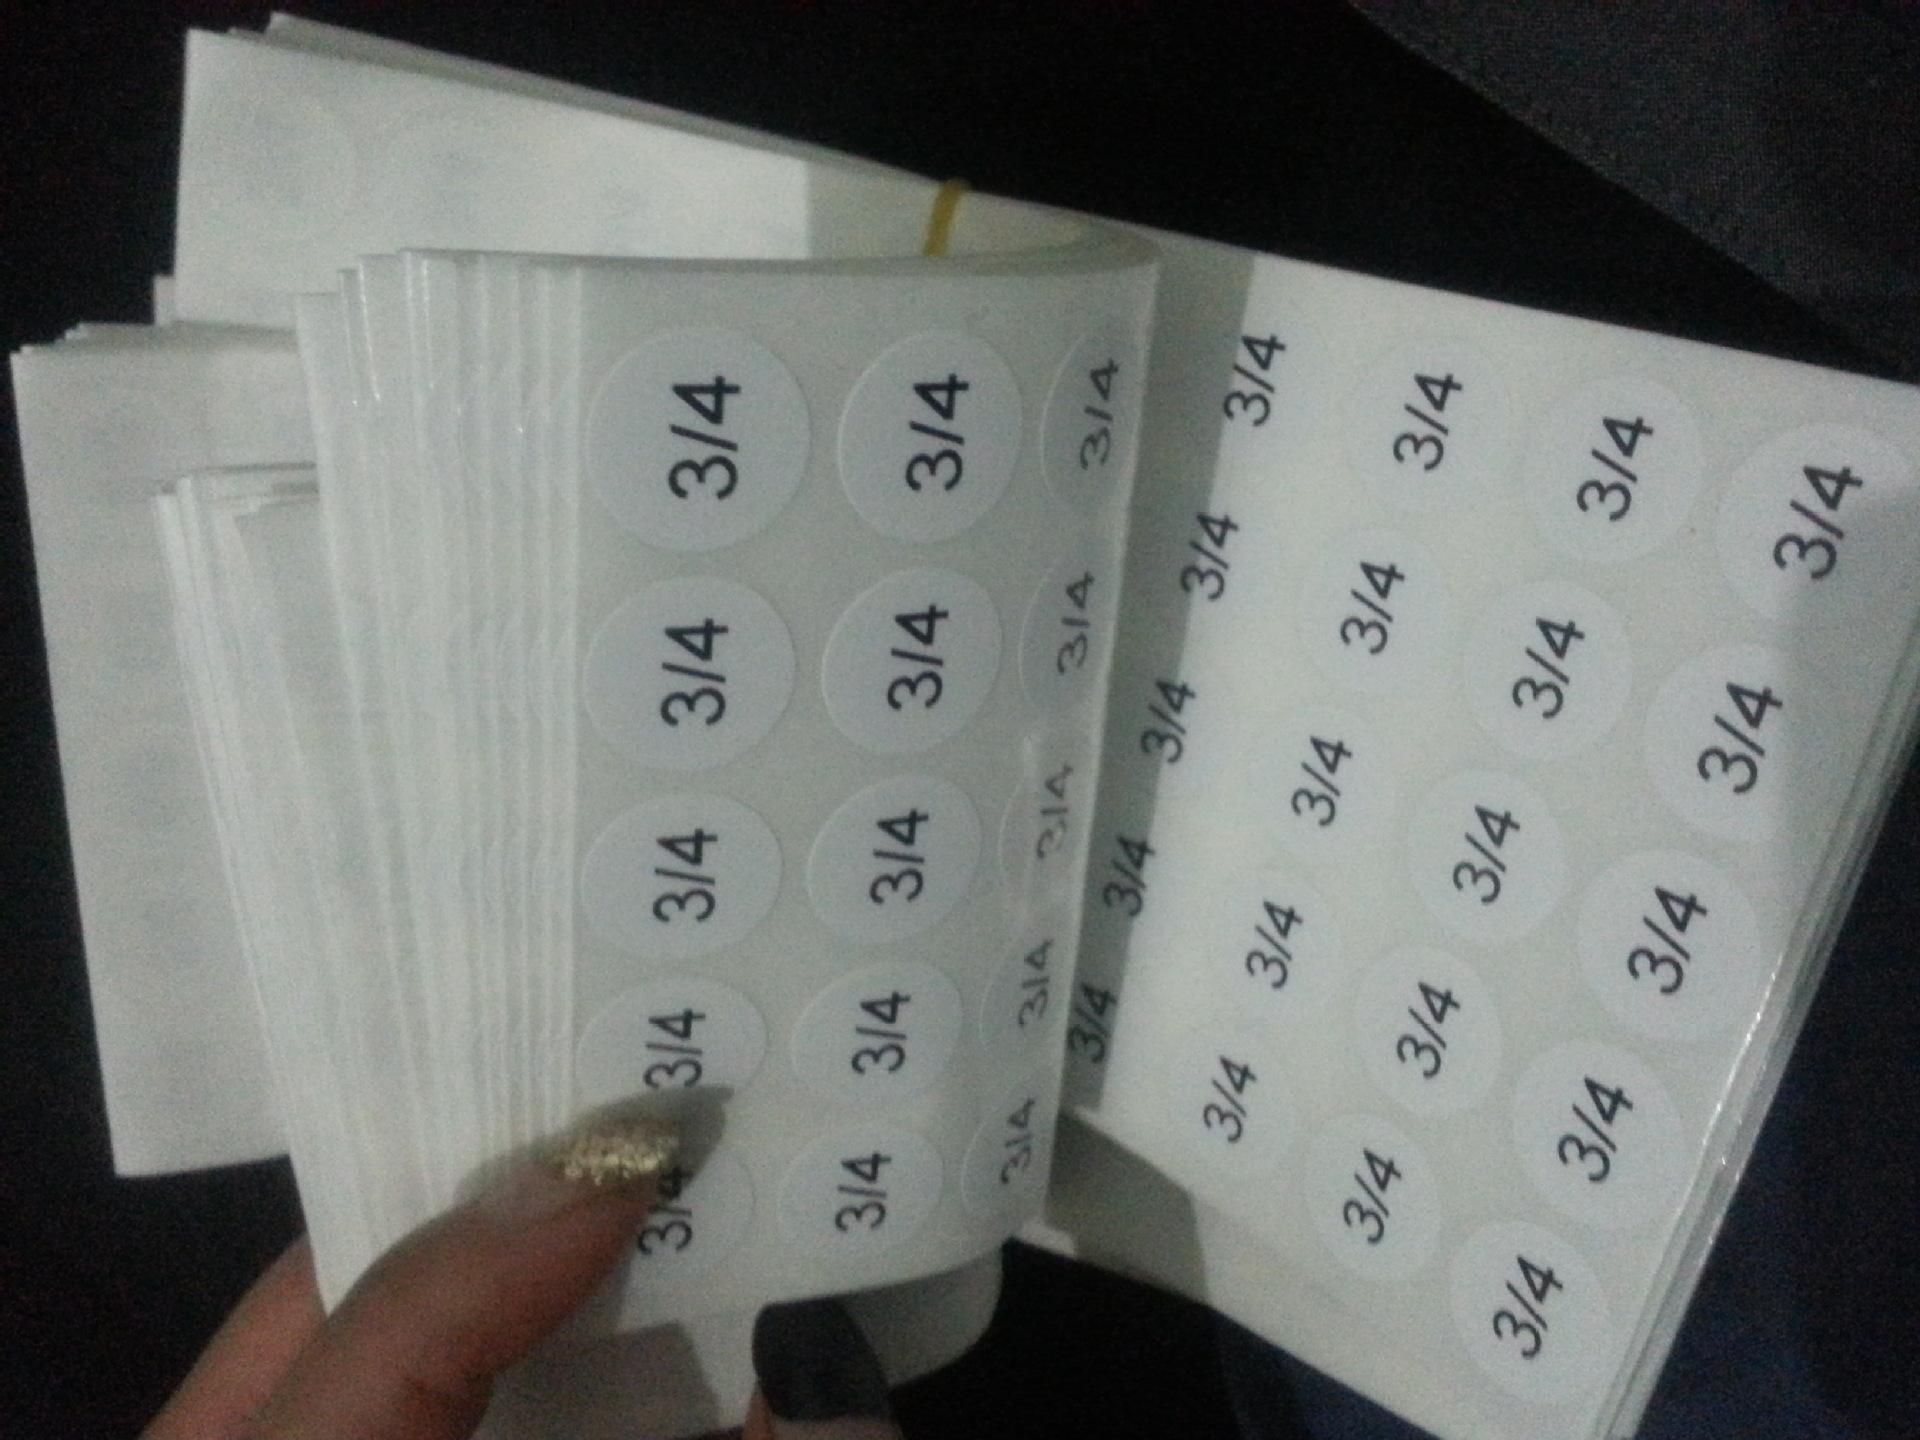 3/4 3/4 3/4 3/4 3/4
3/4 3/4 3/4 3/4 3/4
3/4 3/4 3/4 3/4 3/4
3/4 3/4 3/4 3/4 3/4
3/4 3/4 3/4 3/4 3/4
3/4 3/4 3/4 3/4 3/4
3/4 3/4 3/4 3/4 3/4